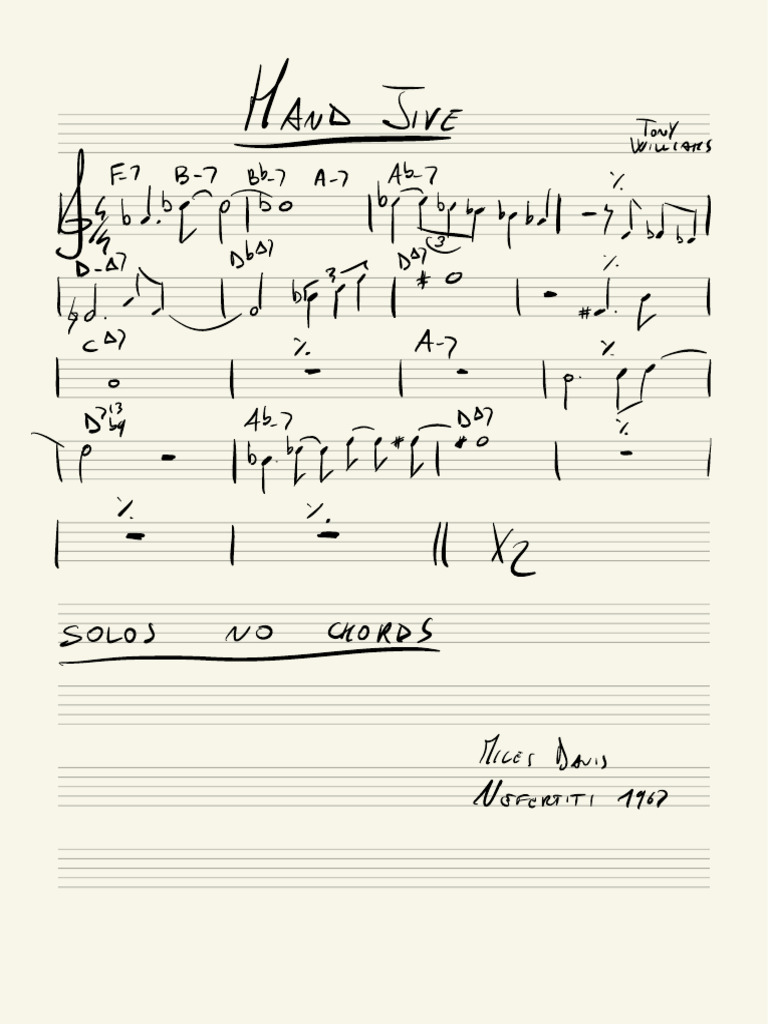 HAND JIVE
TONY
WILLIAMS
F-7 B-7 Bb-7 A-7 Ab-7 ٪
3
D-Δ7 DbΔ7 DΔ7 ٪
3
CΔ7 ٪ A-7 ٪
D7 13 b9 Ab-7 DΔ7 ٪
٪ ٪ X2
SOLOS NO CHORDS
MILES DAVIS
NEFERTITI 1967